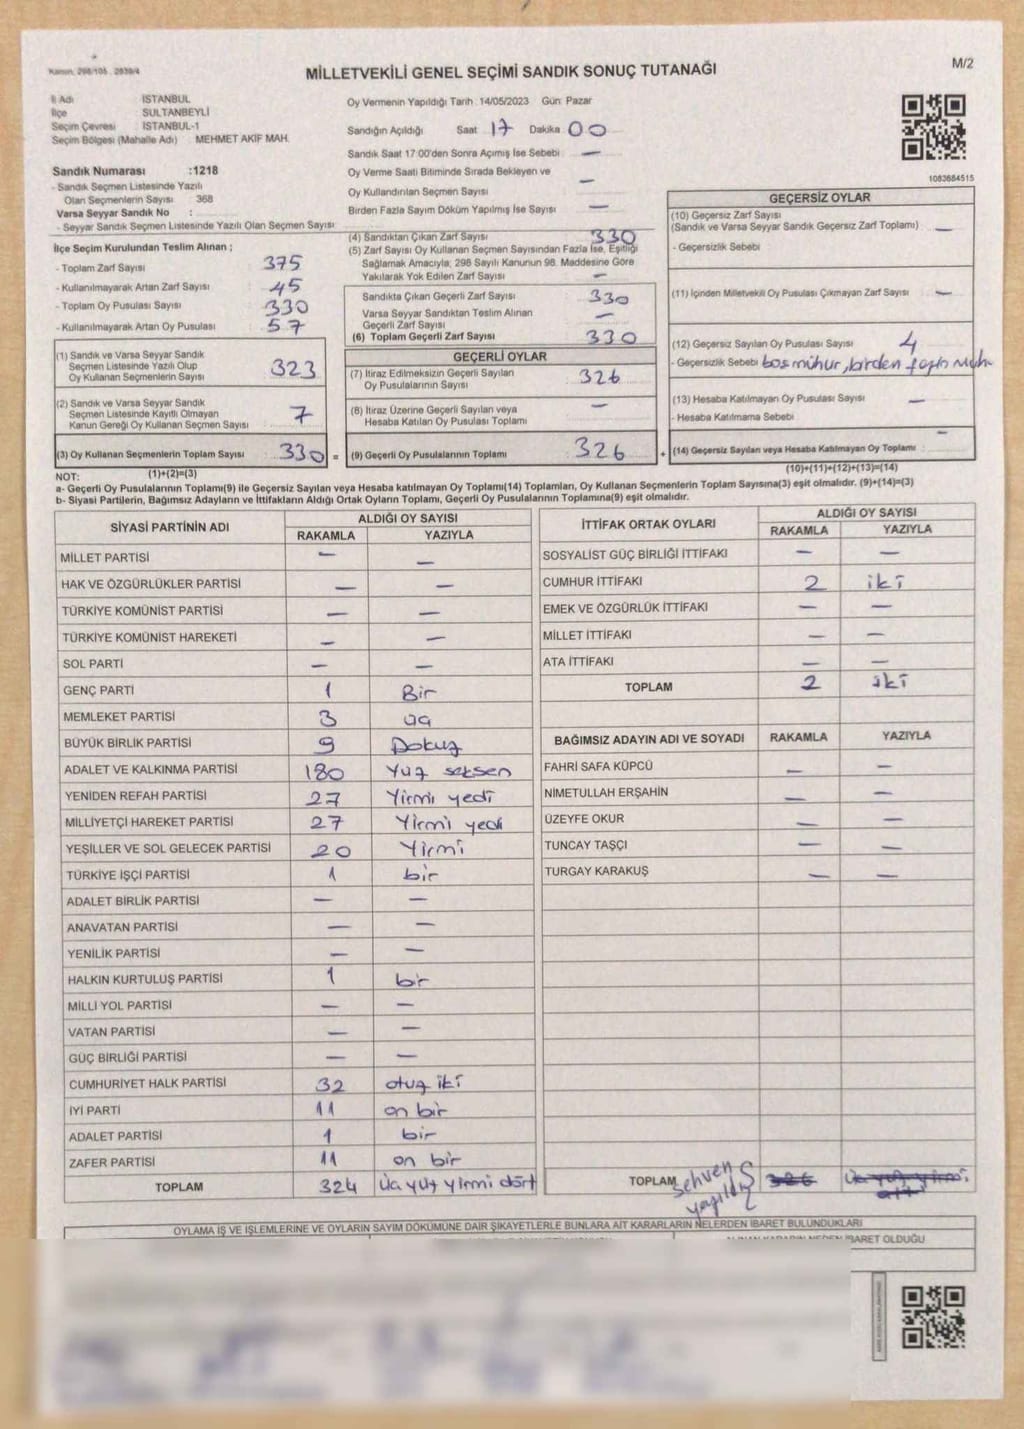 Kanun: 298/105 , 2839/4
MİLLETVEKİLİ GENEL SEÇİMİ SANDIK SONUÇ TUTANAĞI
M/2
İl Adı İSTANBUL
İlçe SULTANBEYLİ
Seçim Çevresi İSTANBUL-1
Seçim Bölgesi (Mahalle Adı) MEHMET AKİF MAH.
Sandık Numarası :1218
- Sandık Seçmen Listesinde Yazılı
Olan Seçmenlerin Sayısı 368
Varsa Seyyar Sandık No :
- Seyyar Sandık Seçmen Listesinde Yazılı Olan Seçmen Sayısı
Oy Vermenin Yapıldığı Tarih 14/05/2023 Gün: Pazar
Sandığın Açıldığı Saat 17 Dakika 00
Sandık Saat 17:00'den Sonra Açımış İse Sebebi —
Oy Verme Saati Bitiminde Sırada Bekleyen ve
Oy Kullandırılan Seçmen Sayısı —
Birden Fazla Sayım Döküm Yapılmış İse Sayısı —
1083684515
İlçe Seçim Kurulundan Teslim Alınan ;
- Toplam Zarf Sayısı 375
- Kullanılmayarak Artan Zarf Sayısı 45
- Toplam Oy Pusulası Sayısı 330
- Kullanılmayarak Artan Oy Pusulası 57
(1) Sandık ve Varsa Seyyar Sandık
Seçmen Listesinde Yazılı Olup
Oy Kullanan Seçmenlerin Sayısı 323
(2) Sandık ve Varsa Seyyar Sandık
Seçmen Listesinde Kayıtlı Olmayan
Kanun Gereği Oy Kullanan Seçmen Sayısı 7
(3) Oy Kullanan Seçmenlerin Toplam Sayısı 330 =
(4) Sandıktan Çıkan Zarf Sayısı 330
(5) Zarf Sayısı Oy Kullanan Seçmen Sayısından Fazla İse, Eşitliği
Sağlamak Amacıyla; 298 Sayılı Kanunun 98. Maddesine Göre
Yakılarak Yok Edilen Zarf Sayısı —
Sandıkta Çıkan Geçerli Zarf Sayısı 330
Varsa Seyyar Sandıktan Teslim Alınan
Geçerli Zarf Sayısı —
(6) Toplam Geçerli Zarf Sayısı 330
GEÇERLİ OYLAR
(7) İtiraz Edilmeksizin Geçerli Sayılan
Oy Pusulalarının Sayısı 326
(8) İtiraz Üzerine Geçerli Sayılan veya
Hesaba Katılan Oy Pusulası Toplamı —
(9) Geçerli Oy Pusulalarının Toplamı 326 +
GEÇERSİZ OYLAR
(10) Geçersiz Zarf Sayısı
(Sandık ve Varsa Seyyar Sandık Geçersiz Zarf Toplamı) —
- Geçersizlik Sebebi
(11) İçinden Milletvekili Oy Pusulası Çıkmayan Zarf Sayısı —
(12) Geçersiz Sayılan Oy Pusulası Sayısı 4
- Geçersizlik Sebebi boş mühür, birden fazla Müh
(13) Hesaba Katılmayan Oy Pusulası Sayısı —
- Hesaba Katılmama Sebebi
(14) Geçersiz Sayılan veya Hesaba Katılmayan Oy Toplamı —
NOT: (1)+(2)=(3) (10)+(11)+(12)+(13)=(14)
a- Geçerli Oy Pusulalarının Toplamı(9) ile Geçersiz Sayılan veya Hesaba katılmayan Oy Toplamı(14) Toplamları, Oy Kullanan Seçmenlerin Toplam Sayısına(3) eşit olmalıdır. (9)+(14)=(3)
b- Siyasi Partilerin, Bağımsız Adayların ve İttifakların Aldığı Ortak Oyların Toplamı, Geçerli Oy Pusulalarının Toplamına(9) eşit olmalıdır.
SİYASİ PARTİNİN ADI ALDIĞI OY SAYISI
RAKAMLA YAZIYLA
MİLLET PARTİSİ — —
HAK VE ÖZGÜRLÜKLER PARTİSİ — —
TÜRKİYE KOMÜNİST PARTİSİ — —
TÜRKİYE KOMÜNİST HAREKETİ — —
SOL PARTİ — —
GENÇ PARTİ 1 Bir
MEMLEKET PARTİSİ 3 üç
BÜYÜK BİRLİK PARTİSİ 9 Dokuz
ADALET VE KALKINMA PARTİSİ 180 Yüz seksen
YENİDEN REFAH PARTİSİ 27 Yirmi yedi
MİLLİYETÇİ HAREKET PARTİSİ 27 Yirmi yedi
YEŞİLLER VE SOL GELECEK PARTİSİ 20 Yirmi
TÜRKİYE İŞÇİ PARTİSİ 1 bir
ADALET BİRLİK PARTİSİ — —
ANAVATAN PARTİSİ — —
YENİLİK PARTİSİ — —
HALKIN KURTULUŞ PARTİSİ 1 bir
MİLLİ YOL PARTİSİ — —
VATAN PARTİSİ — —
GÜÇ BİRLİĞİ PARTİSİ — —
CUMHURİYET HALK PARTİSİ 32 otuz iki
İYİ PARTİ 11 on bir
ADALET PARTİSİ 1 bir
ZAFER PARTİSİ 11 on bir
TOPLAM 324 üç yüz yirmi dört
İTTİFAK ORTAK OYLARI ALDIĞI OY SAYISI
RAKAMLA YAZIYLA
SOSYALİST GÜÇ BİRLİĞİ İTTİFAKI — —
CUMHUR İTTİFAKI 2 iki
EMEK VE ÖZGÜRLÜK İTTİFAKI — —
MİLLET İTTİFAKI — —
ATA İTTİFAKI — —
TOPLAM 2 iki
BAĞIMSIZ ADAYIN ADI VE SOYADI RAKAMLA YAZIYLA
FAHRİ SAFA KÜPCÜ — —
NİMETULLAH ERŞAHİN — —
ÜZEYFE OKUR — —
TUNCAY TAŞÇI — —
TURGAY KARAKUŞ — —
TOPLAM sehven 326 üç yüz yirmi
yazıldı altı
OYLAMA İŞ VE İŞLEMLERİNE VE OYLARIN SAYIM DÖKÜMÜNE DAİR ŞİKAYETLERLE BUNLARA AİT KARARLARIN NELERDEN İBARET BULUNDUKLARI
ALINAN KARARIN NEDEN İBARET OLDUĞU